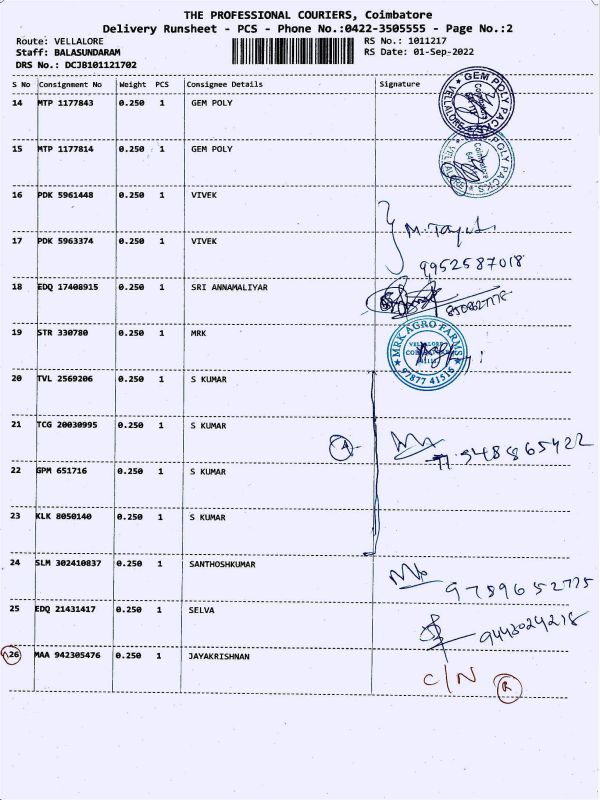 THE PROFESSIONAL COURIERS, Coimbatore
Delivery Runsheet - PCS - Phone No.:0422-3505555 - Page No.:2
Route: VELLALORE
Staff: BALASUNDARAM
DRS No.: DCJB101121702
RS No.: 1011217
RS Date: 01-Sep-2022
S No Consignment No Weight PCS Consignee Details Signature
14 MTP 1177843 0.250 1 GEM POLY
GEM POLY PACKS
VELLALORE
Coimbatore
15 MTP 1177814 0.250 1 GEM POLY
POLY PACKS
Coimbatore
16 PDK 5961448 0.250 1 VIVEK
17 PDK 5963374 0.250 1 VIVEK
9952587018
18 EDQ 17408915 0.250 1 SRI ANNAMALIYAR
19 STR 330780 0.250 1 MRK
MRK AGRO FARMS
VELLALORE
97877 41516
20 TVL 2569206 0.250 1 S KUMAR
21 TCG 20030995 0.250 1 S KUMAR
22 GPM 651716 0.250 1 S KUMAR
23 KLK 8050140 0.250 1 S KUMAR
24 SLM 302410837 0.250 1 SANTHOSHKUMAR
25 EDQ 21431417 0.250 1 SELVA
26 MAA 942305476 0.250 1 JAYAKRISHNAN
C/N R